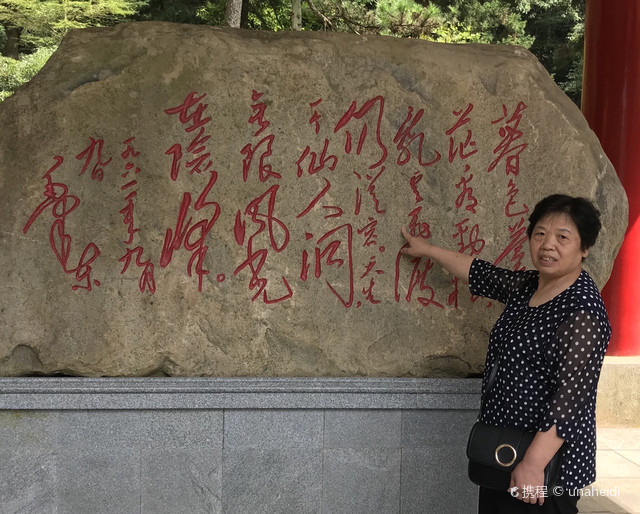 暮色苍
茫看劲松
乱云飞渡
仍從容。天生一
个仙人洞
无限风光
在險峰。
一九六一年九月
九日
毛泽东
携程 © unaheidi